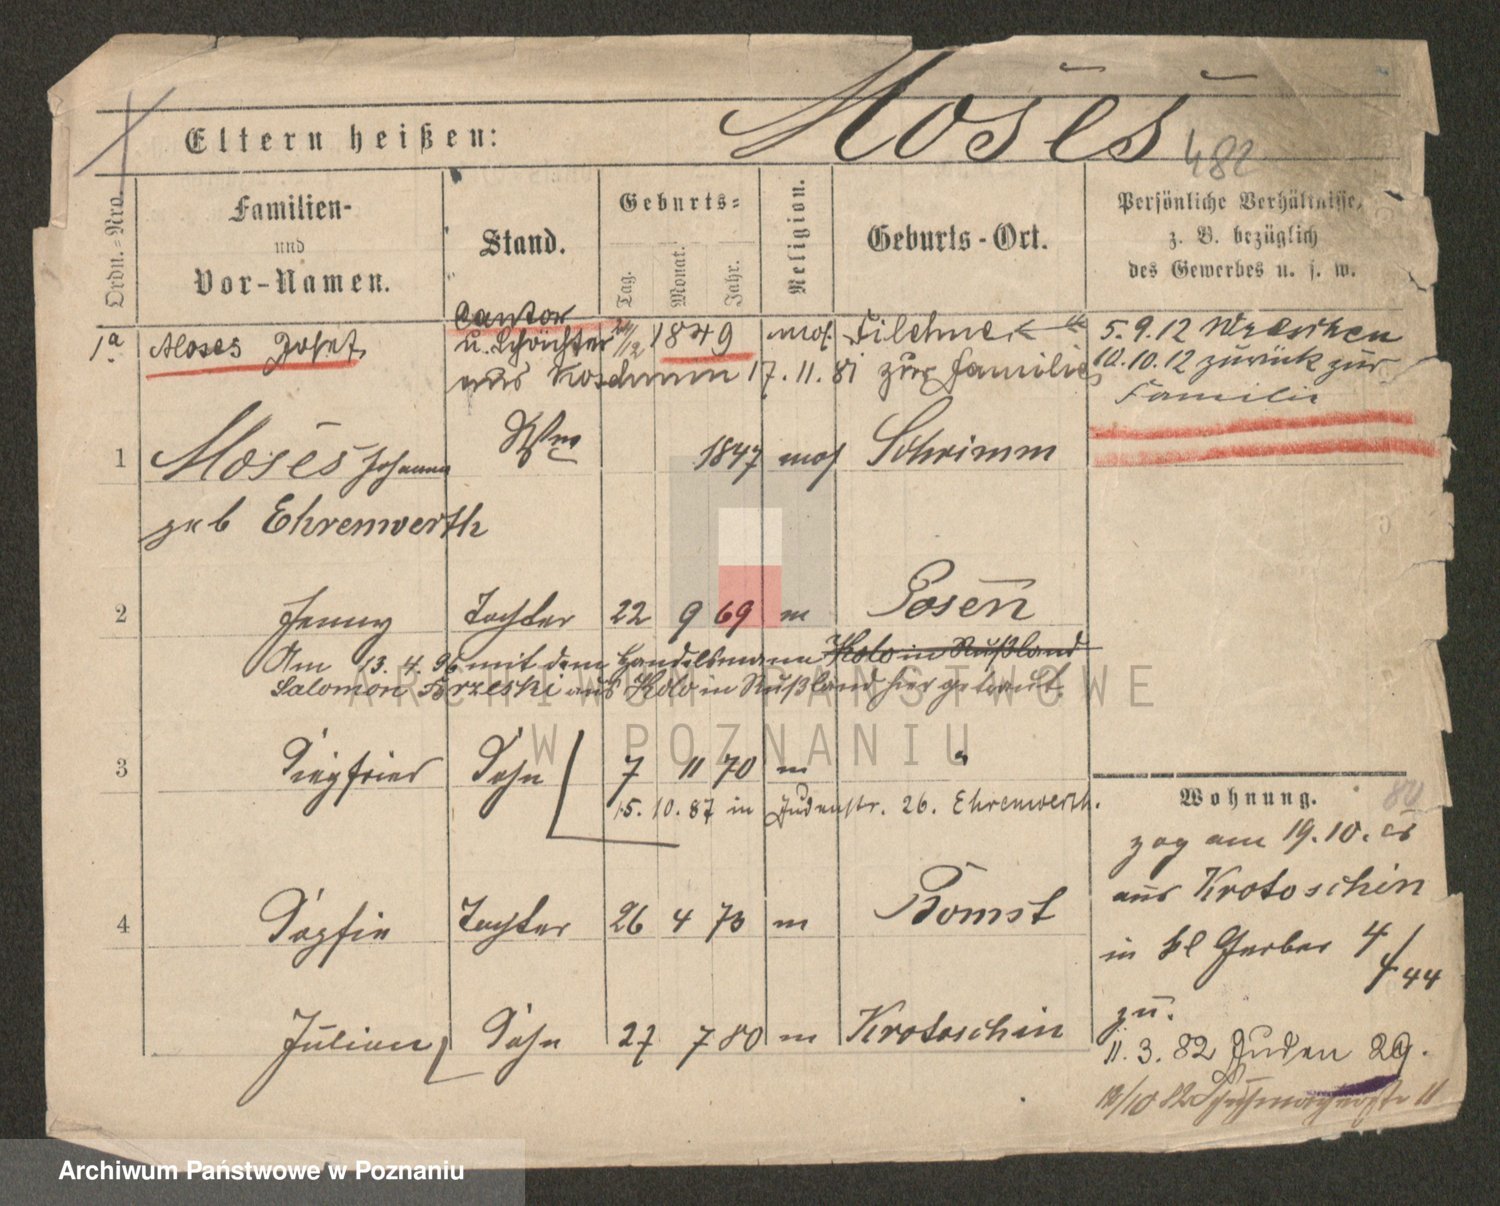 Moses
482
Eltern heißen:
Ordn.-Nro.
Familien-
und
Vor-Namen.
Stand.
Geburts-
Tag.
Monat.
Jahr.
Religion.
Geburts-Ort.
Persönliche Verhältnisse,
z. B. bezüglich
des Gewerbes u. s. w.
Cantor
1a Moses Josef u. Schächter 24/12 1849 mos. Filehne
aus Koschmin 17.11.81 zur Familie
5.9.12 Wreschen
10.10.12 zurück zur
Familie
1 Moses Johanna Wwe 1847 mos Schrimm
geb Ehrenwerth
2 Jenny Tochter 22 9 69 m Posen
Am 13.4.96 mit dem Handelsmann Kolo in Rußland
Salomon Brzeski aus Kolo in Rußland hier getraut.
3 Siegfried Sohn 7 11 70 m "
15.10.87 in Judenstr. 26. Ehrenwerth.
Wohnung.
80
zog am 19.10.
aus Krotoschin
in kl Gerber 4
4/44
zu.
11.3.82 Juden 29.
12/10 82 Schuhmacherstr 11
4 Sophie Tochter 26 4 73 m Bomst
Julian Sohn 27 7 80 m Krotoschin
ARCHIWUM PAŃSTWOWE
W POZNANIU
Archiwum Państwowe w Poznaniu